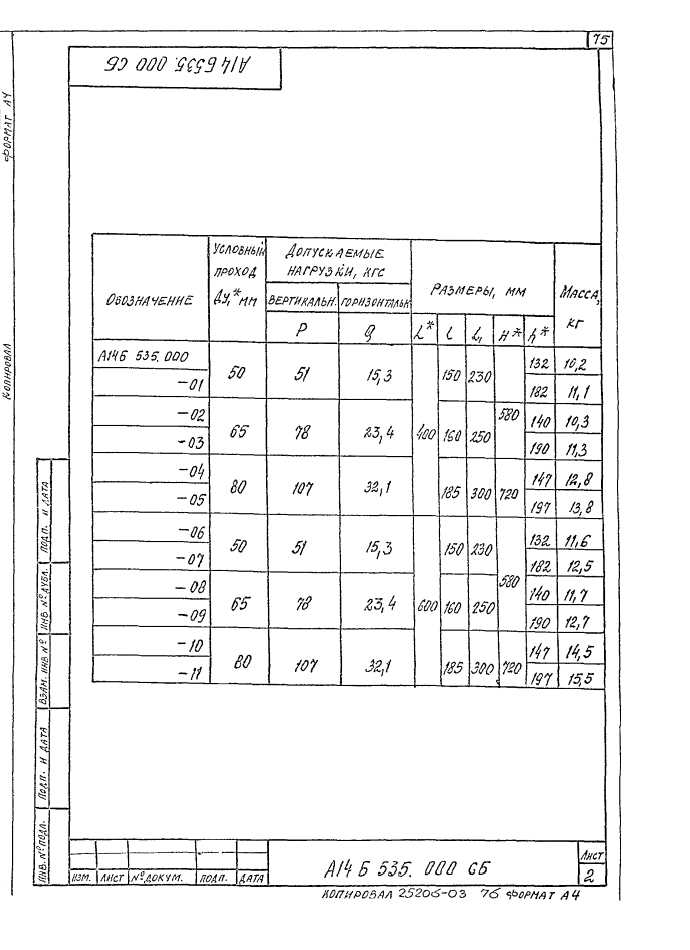 75
А14Б535. 000 СБ
ФОРМАТ А4
КОПИРОВАЛ
ОБОЗНАЧЕНИЕ | УСЛОВНЫЙ ПРОХОД Ду,* ММ | ДОПУСКАЕМЫЕ НАГРУЗКИ, КГС | РАЗМЕРЫ, ММ | МАССА, КГ
ВЕРТИКАЛЬН. | ГОРИЗОНТАЛЬН.
P | Q | L* | l | L1 | H* | h*
А14Б 535.000 | 50 | 51 | 15,3 | 400 | 150 | 230 | 580 | 132 | 10,2
-01 | 182 | 11,1
-02 | 65 | 78 | 23,4 | 160 | 250 | 140 | 10,3
-03 | 190 | 11,3
-04 | 80 | 107 | 32,1 | 185 | 300 | 720 | 147 | 12,8
-05 | 197 | 13,8
-06 | 50 | 51 | 15,3 | 600 | 150 | 230 | 580 | 132 | 11,6
-07 | 182 | 12,5
-08 | 65 | 78 | 23,4 | 160 | 250 | 140 | 11,7
-09 | 190 | 12,7
-10 | 80 | 107 | 32,1 | 185 | 300 | 720 | 147 | 14,5
-11 | 197 | 15,5
ПОДП. И ДАТА
ИНВ № ДУБЛ.
ВЗАМ. ИНВ №
ПОДП. И ДАТА
ИНВ. № ПОДЛ.
ИЗМ. ЛИСТ № ДОКУМ. ПОДП. ДАТА
А14 Б 535. 000 СБ
ЛИСТ
2
КОПИРОВАЛ 25206-03 76 ФОРМАТ А4